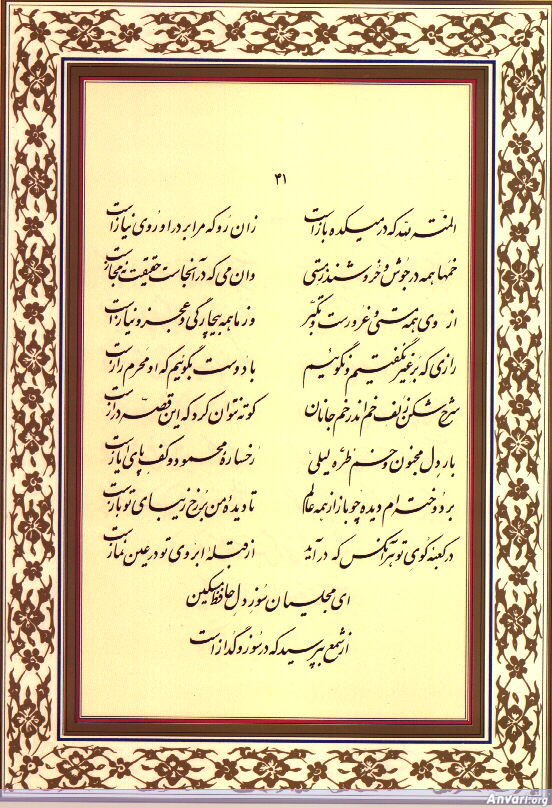 ۴۱
المنة لله که در میکده باز است زان رو که مرا بر در او روی نیاز است
خمها همه در جوش و خروشند ز مستی وان می که در آنجاست حقیقت نه مجاز است
از وی همه مستی و غرورست و تکبر وز ما همه بیچارگی و عجز و نیاز است
رازی که بر غیر نگفتیم و نگوئیم با دوست بگوئیم که او محرم راز است
شرح شکن زلف خم اندر خم جانان کوته نتوان کرد که این قصه دراز است
بار دل مجنون و خم طره لیلی رخساره محمود و کف پای ایاز است
بردوخته‌ام دیده چو باز از همه عالم تا دیده من بر رخ زیبای تو باز است
در کعبه کوی تو هر آنکس که درآید از قبله ابروی تو در عین نماز است
ای مجلسیان سوز دل حافظ مسکین
از شمع بپرسید که در سوز و گداز است
Anvari.org